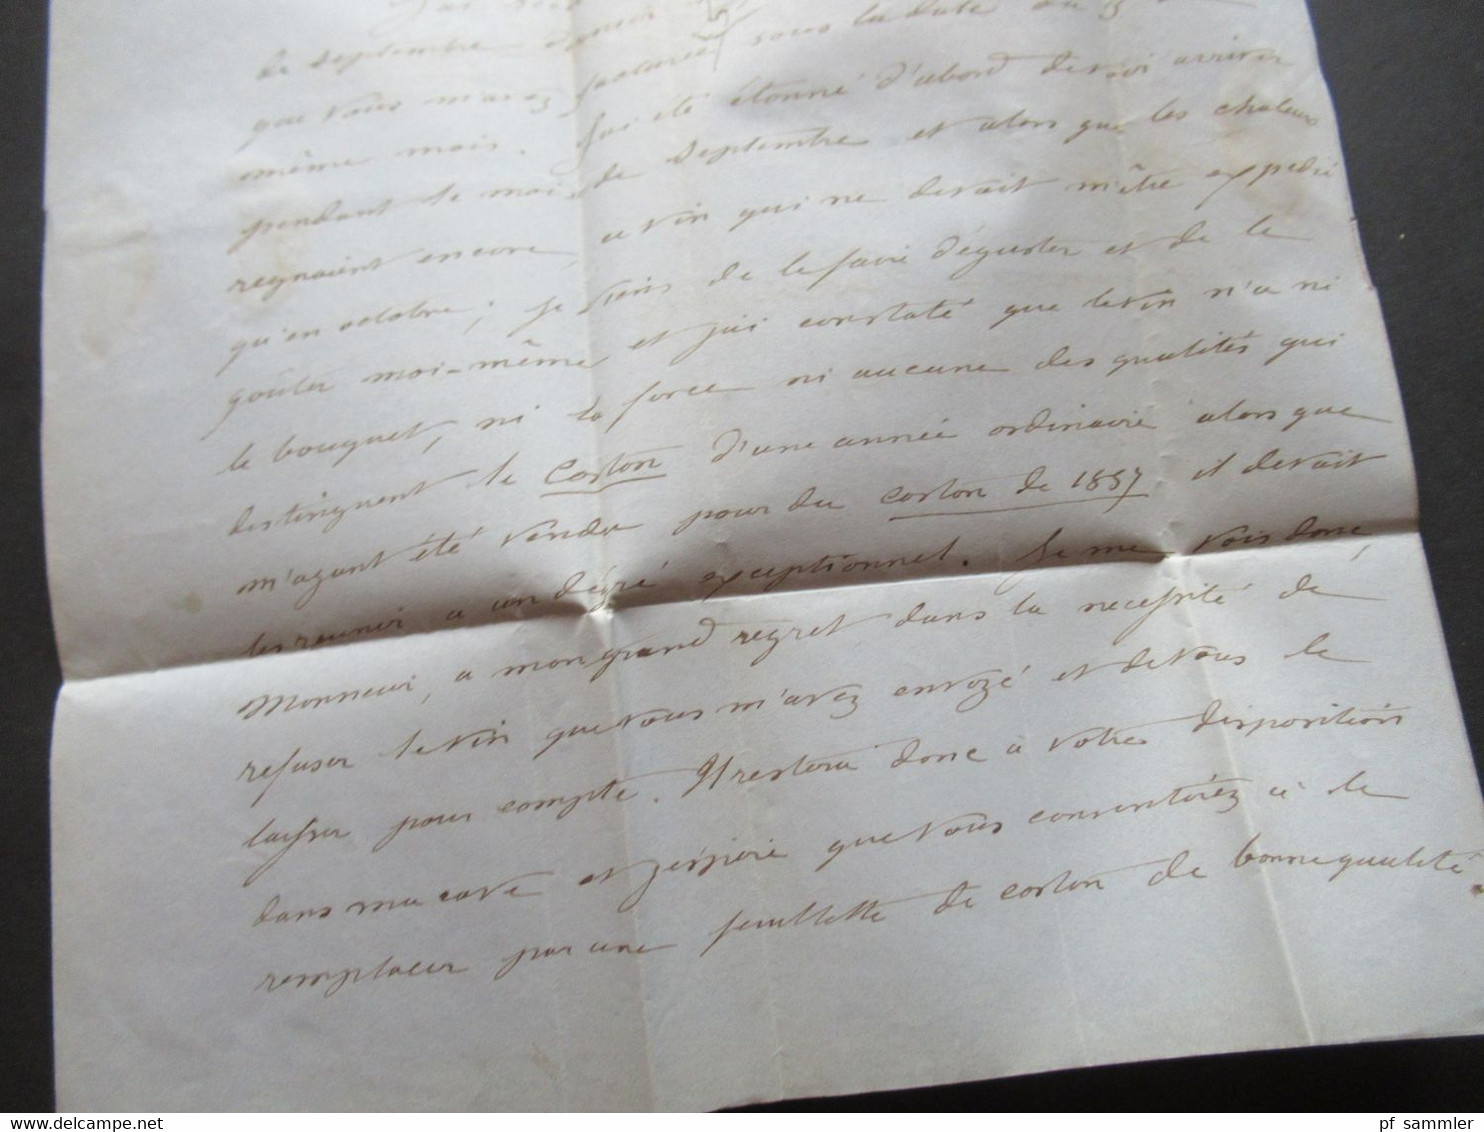 J'ai reçu
de septembre
que vous m'avez facturée sous la date du 3
même mois. J'ai été étonné d'abord de voir arriver
pendant le mois de septembre et alors que les chaleurs
regnaient encore, ce vin qui ne devait m'être expédié
qu'en octobre; Je viens de le faire déguster et de le
goûter moi-même et j'ai constaté que le vin n'a ni
le bouquet, ni la force ni aucune des qualités qui
distinguent le corton d'une année ordinaire alors que
m'ayant été vendu pour du corton de 1857 il devait
les reunir a un dégré exceptionnel. Je me vois donc,
Monsieur, a mon grand regret dans la necessité de
refuser le vin que vous m'avez envoyé et de vous le
laisser pour compte. Il restera donc à votre disposition
dans ma cave et j'espère que vous consentirez à le
remplacer par une feuillette de corton de bonne qualité.
pf_sammler